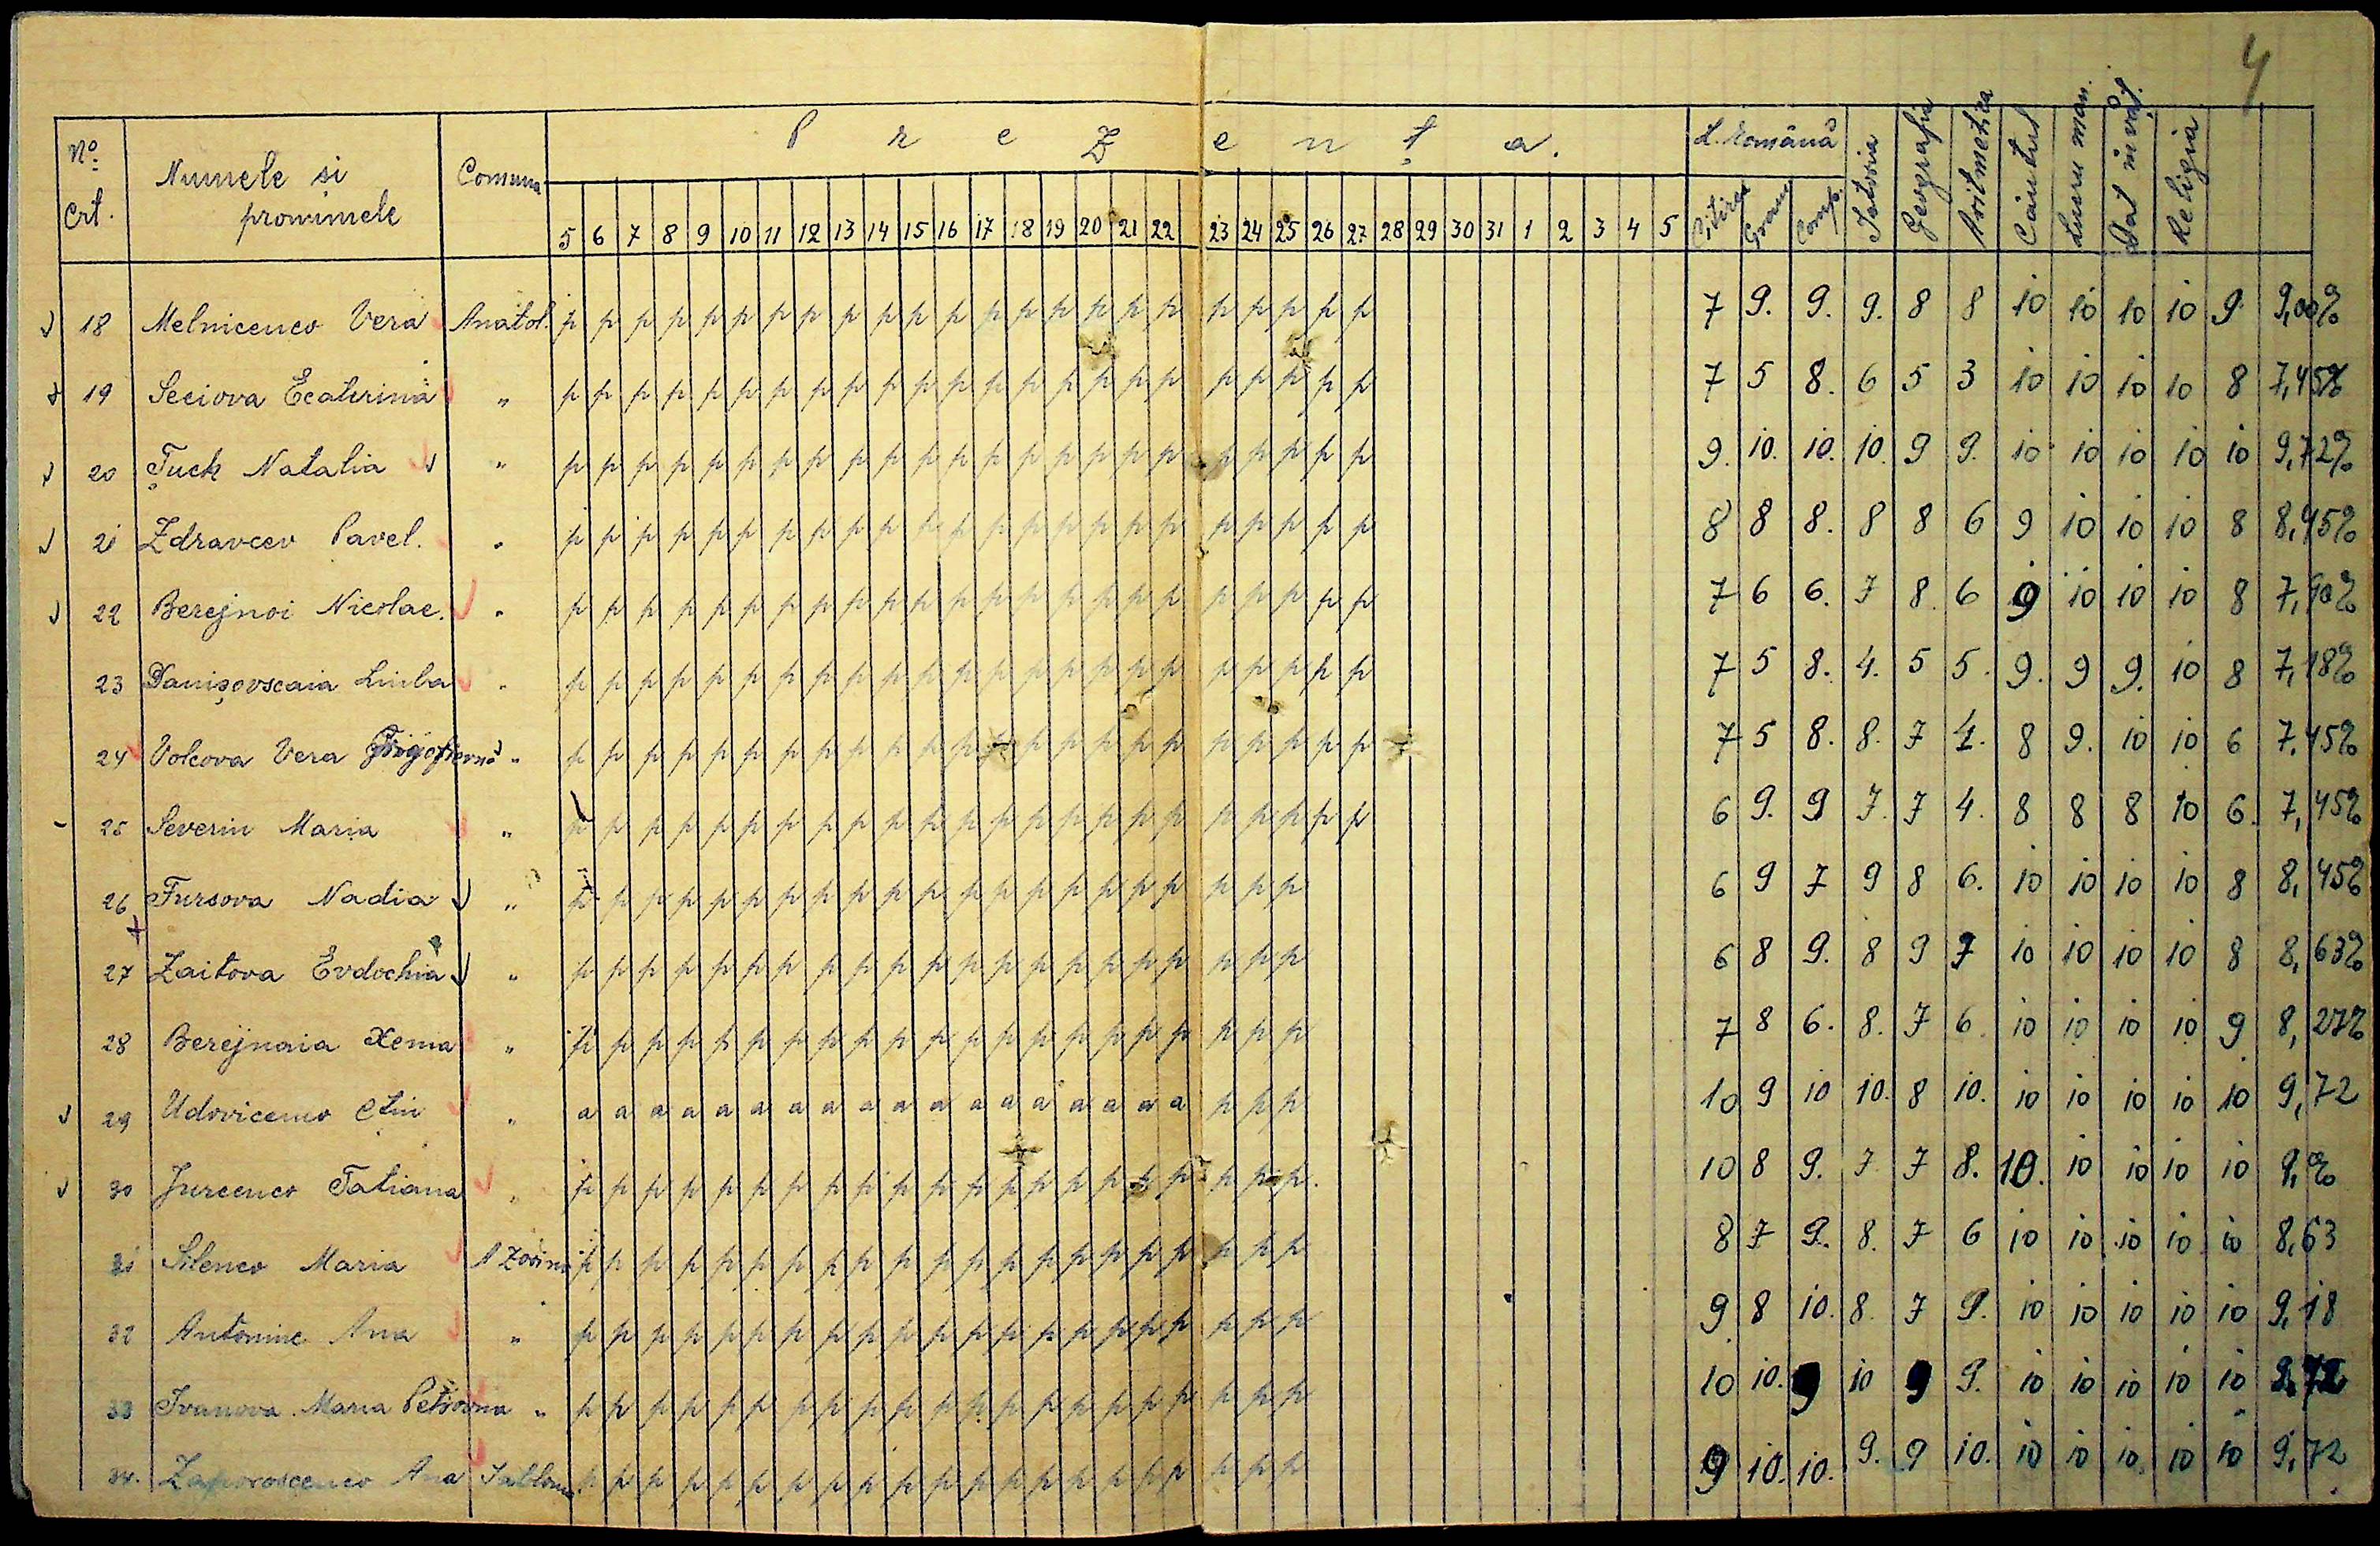 4
Nº Crt. Numele si pronumele Comuna P r e z e n ț a. L. Română Istoria Geografia Aritmetica Cântul Lucru man. Dat. învăț. Religia
5 6 7 8 9 10 11 12 13 14 15 16 17 18 19 20 21 22 23 24 25 26 27 28 29 30 31 1 2 3 4 5 Citirea Gram Comp.
18 Melnicenco Vera Anatol. p p p p p p p p p p p p p p p p p p p p p p p 7 9. 9. 9. 8 8 10 10 10 10 9 9,00%
19 Seciova Ecaterina " p p p p p p p p p p p p p p p p p p p p p p p 7 5 8. 6 5 3 10 10 10 10 8 7,45%
20 Țuck Natalia " p p p p p p p p p p p p p p p p p p p p p p p 9. 10. 10. 10. 9 9. 10 10 10 10 10 9,72%
21 Zdravcev Pavel. " p p p p p p p p p p p p p p p p p p p p p p p 8 8 8. 8 8 6 9 10 10 10 8 8,45%
22 Berejnoi Nicolae. " p p p p p p p p p p p p p p p p p p p p p p p 7 6 6. 7 8. 6 9 10 10 10 8 7,90%
23 Danișovscaia Liuba " p p p p p p p p p p p p p p p p p p p p p p p 7 5 8. 4. 5 5. 9. 9 9. 10 8 7,18%
24 Volcova Vera " p p p p p p p p p p p p p p p p p p p p p p p 7 5 8. 8. 7 4. 8 9. 10 10 6 7,45%
25 Severin Maria " p p p p p p p p p p p p p p p p p p p p p p p 6 9. 9 7. 7 4. 8 8 8 10 6. 7,45%
26 Fursova Nadia " p p p p p p p p p p p p p p p p p p p p p 6 9 7 9 8 6. 10 10 10 10 8 8,45%
27 Zaitova Evdochia " p p p p p p p p p p p p p p p p p p p p p 6 8 9. 8 9 7 10 10 10 10 8 8,63%
28 Berejnaia Xenia " p p p p p p p p p p p p p p p p p p p p p 7 8 6. 8. 7 6. 10 10 10 10 9 8,27%
29 Udovicenco Ctin " a a a a a a a a a a a a a a a a a a p p p 10 9 10 10. 8 10. 10 10 10 10 10 9,72
30 Jurcenco Tatiana " p p p p p p p p p p p p p p p p p p p p p. 10 8 9. 7 7 8. 10. 10 10 10 10 9,%
31 Silenco Maria p p p p p p p p p p p p p p p p p p p p p 8 7 9. 8. 7 6 10 10 10 10 10 8,63
32 Antoninc Ana " p p p p p p p p p p p p p p p p p p p p p 9 8 10. 8. 7 9. 10 10 10 10 10 9,18
33 Ivanova Maria Petrovna " p p p p p p p p p p p p p p p p p p p p p 10 10. 9 10 9 9. 10 10 10 10 10 9,72
34. Zaporoscenco Ana p p p p p p p p p p p p p p p p p p p p p 9 10. 10. 9. 9 10. 10 10 10 10 10 9,72